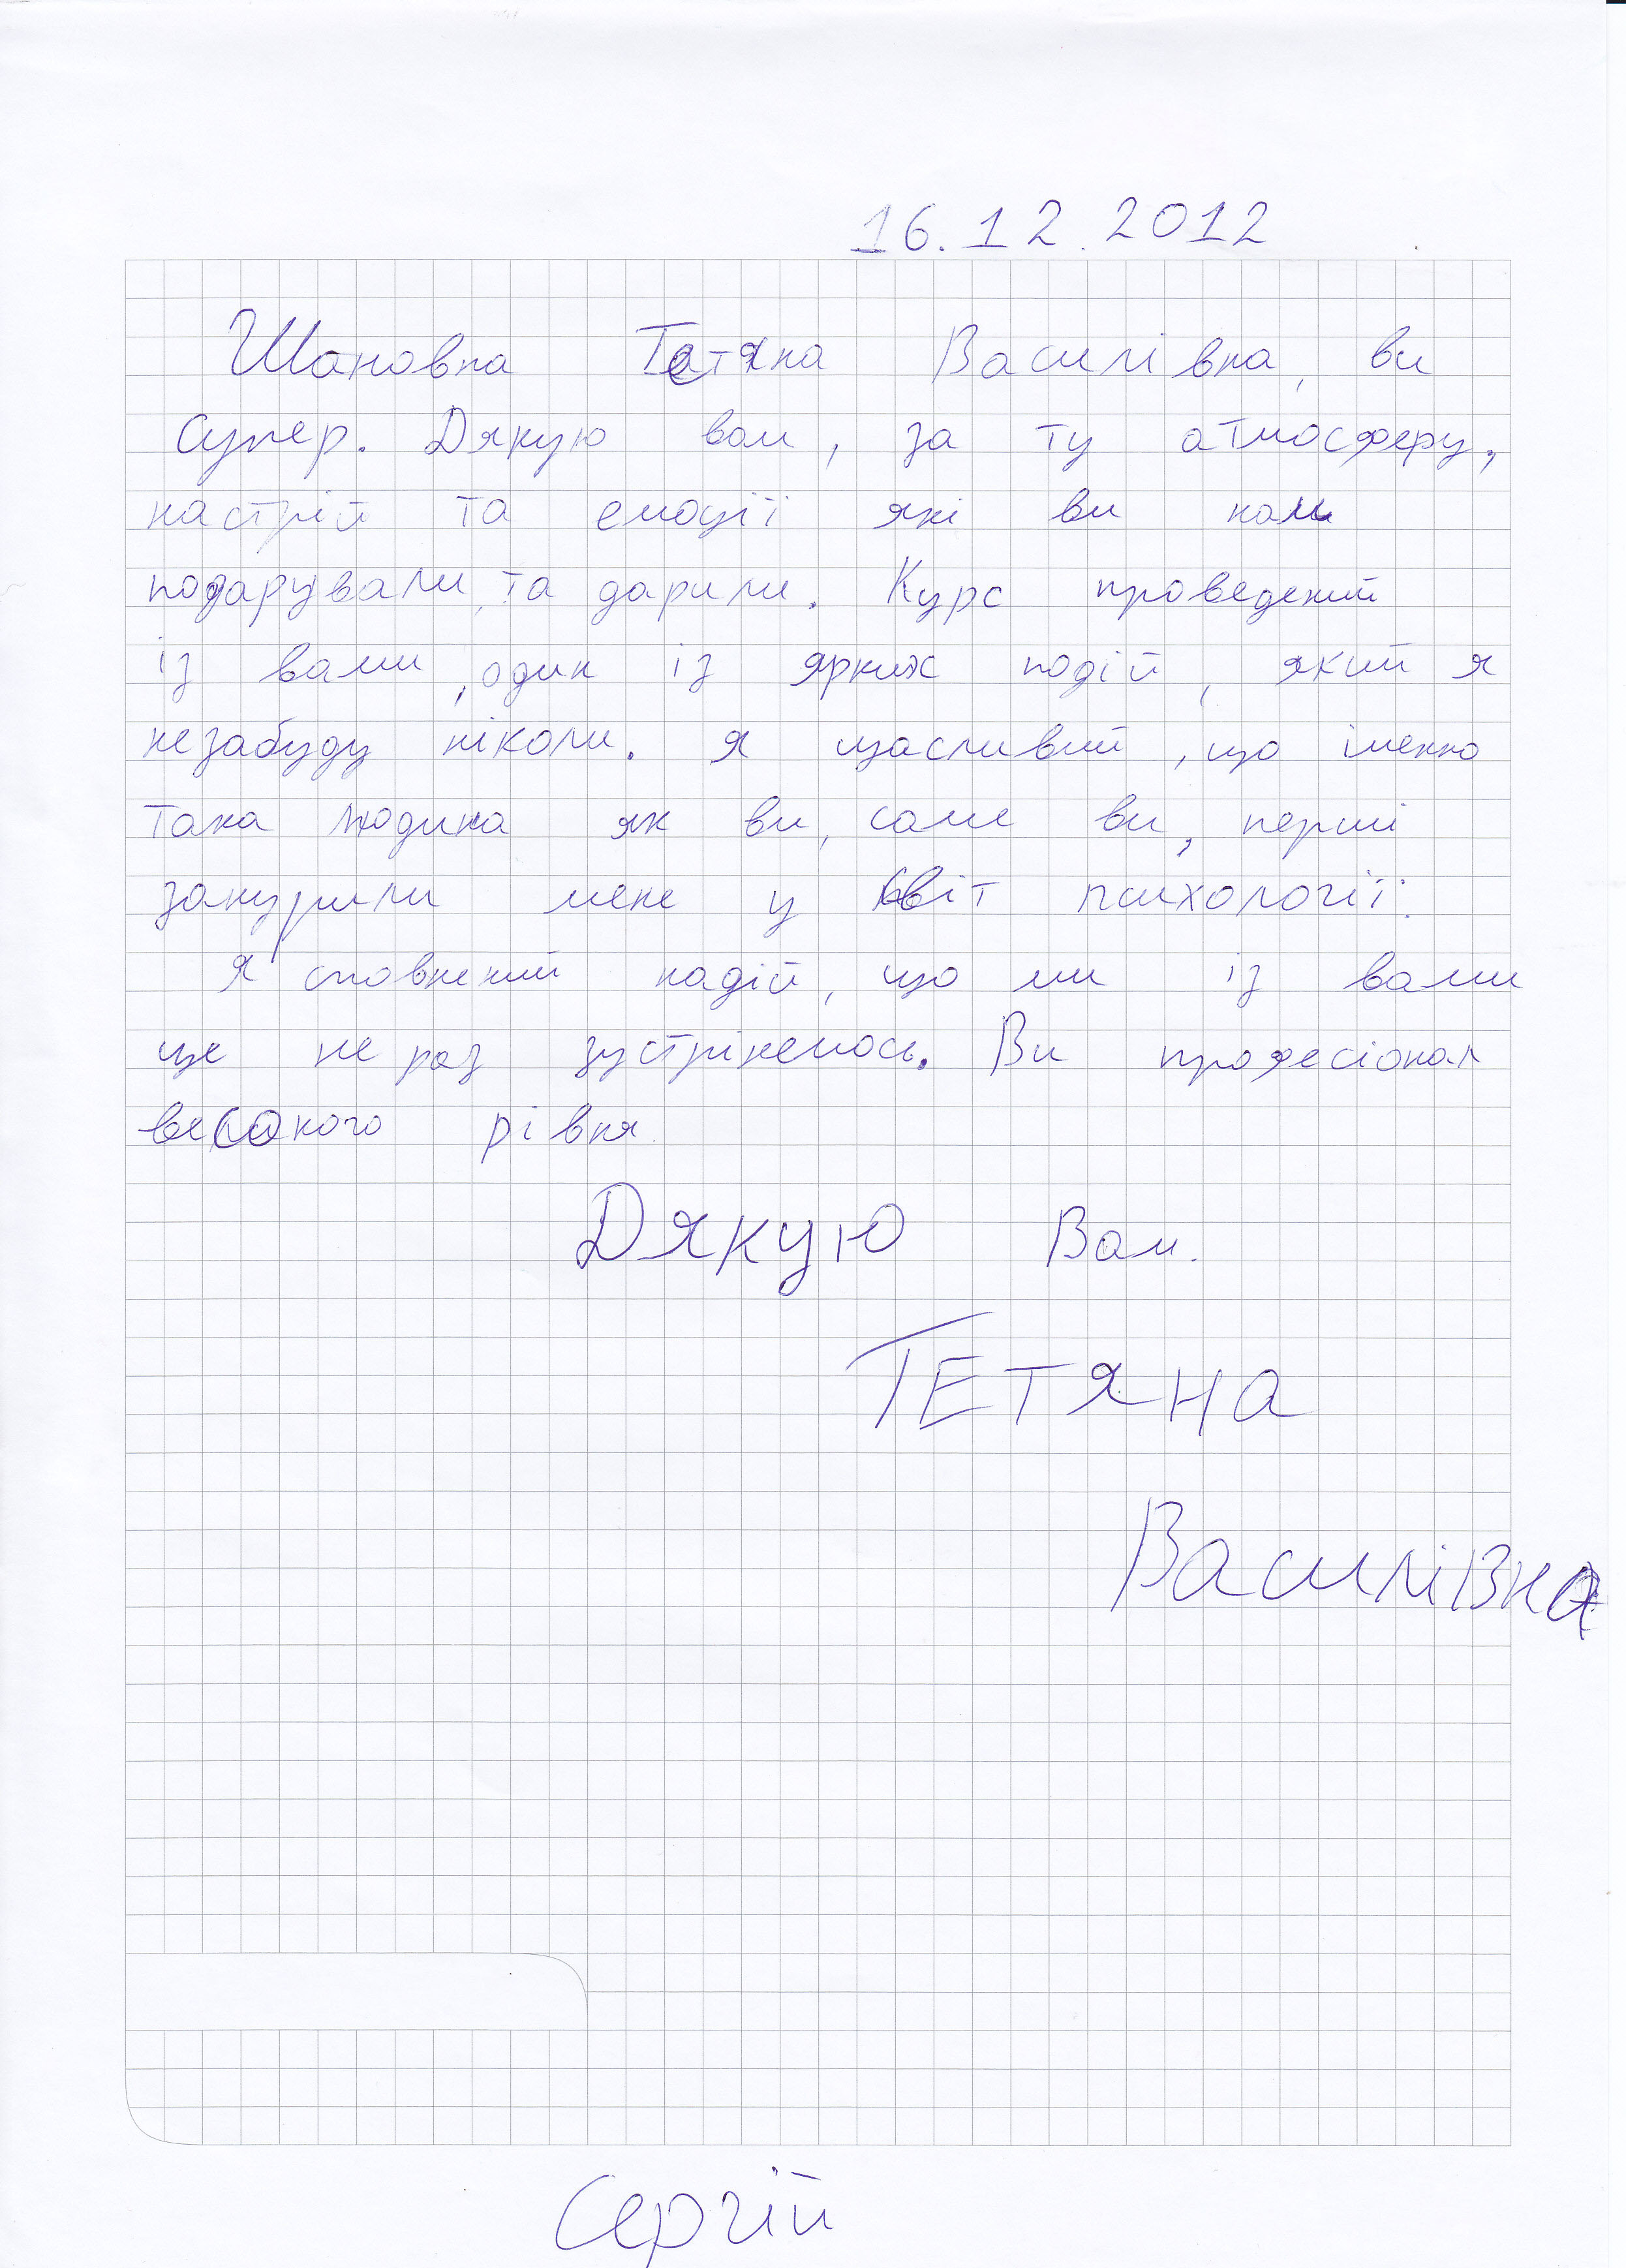 16.12.2012
Шановна Тетяна Василівна, ви
супер. Дякую вам, за ту атмосферу,
настрій та емоції які ви нам
подарували, та дарили. Курс проведений
із вами, один із ярких подій, який я
незабуду ніколи. Я щасливий, що іменно
така людина як ви, саме ви, перші
занурили мене у світ психології.
Я сповнений надій, що ми із вами
ще не раз зустрінемось. Ви професіонал
високого рівня
Дякую Вам.
ТЕТЯНА
Василівна
Сергій